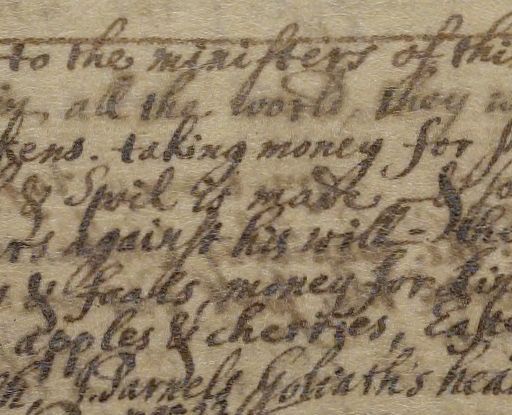 to the ministers of this
all the world, they w
kens. taking money for
& Spoil is made & so
rs against his will - the
y & fualls, money for
apples & cherries, Easte
J. Parnels Goliath's head